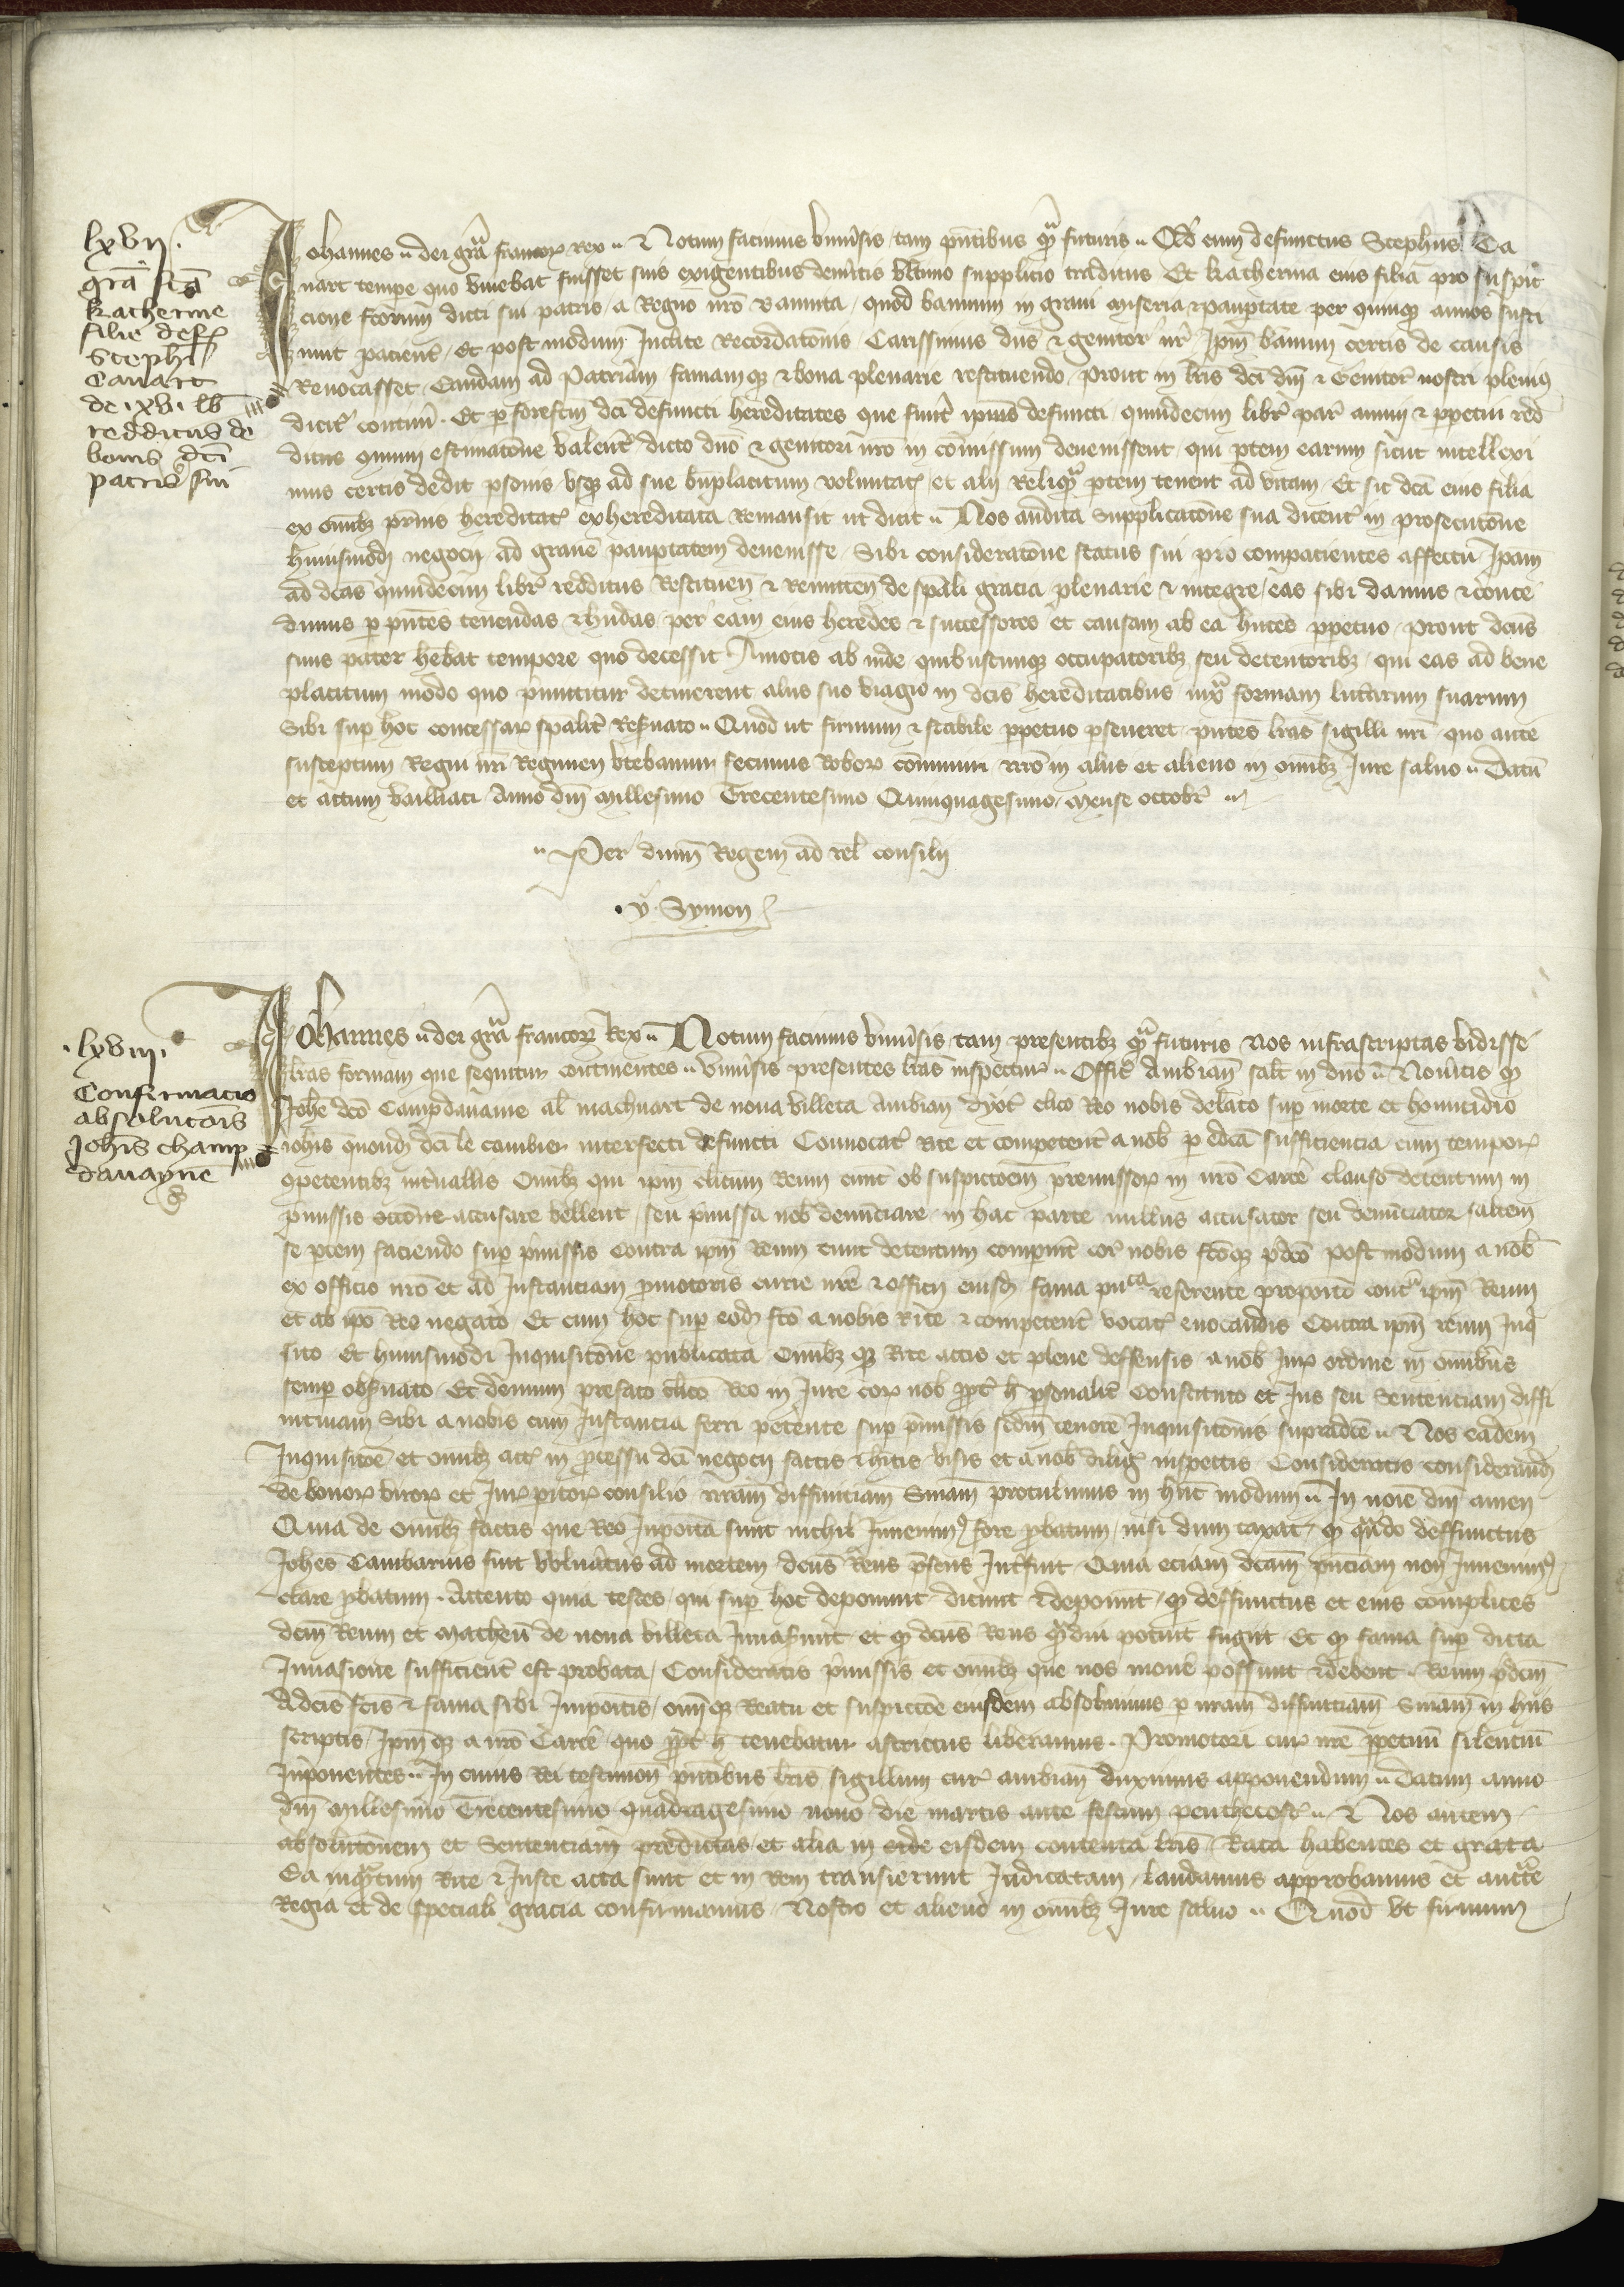 lxvii.
gra͂ fca͂
katherine
filie def
Stephi͂
Cavart
de .xv. lb͂
redditus de
bonis dc͂i
patris sui
Johannes dei gra͂ francor Rex Notum facimus univ͂sis tam pn͂tibus q͂a futuris Q͂d cum defunctus Steph͂us Ca
vart tempe quo vivebat fuisset suis exigentibus dem͂itis ultimo supplicio traditus Et katherina eius filia pro suspit
cione fc͂orum dicti sui patris a Regno nr͂o bannita quod bannum in gravi miseria et paup͂tate per quinque annos susti
nuit pacient͂ Et post modum Inclite Recordato͂nis Carissimus dn͂s et genitor nr͂ Ip͂m bannum certis de causis
Revocasset Eandam ad Patriam famamque et bona plenarie restituendo prout in lr͂is dc͂i dn͂i et Genitor͂ nostri pleni9
dicit͂ contin͂i. Et p͂ forefc͂m dc͂i defuncti hereditates que fuer͂t ip͂ius defuncti quindecim libr͂ par͂ annui et pp͂etui red
ditus co͂muni estimato͂ne valent͂ dicto dn͂o et genitori nr͂o in co͂missum devenissent qui p͂tem earum sicut intellexi
mus certis dedit p͂sonis usque ad sue bn͂placitum voluntat͂ et alii Reliq͂a p͂tem tenent ad vitam Et sic dc͂a eius filia
ex omi͂bz p͂rnis hereditat͂ exhereditata Remansit ut dicit Nos audita Supplicato͂ne sua dicent͂ in prosecuto͂ne
huiusmodi negocii ad grave͂ paup͂tatem devenisse Sibi considerato͂ne status sui pio compacientes affectu Ip͂am
ad dc͂as quindecim libr͂ redditus Restituen͂ et Remitten͂ de sp͂ali gracia plenarie et integre eas sibi damus et conce
dimus p͂ pn͂tes tenendas et hn͂das per eam eius heredes et successores et causam ab ea hn͂tes pp͂etuo prout dc͂us
suus pater heb͂at tempore quo decessit Amotis ab inde quibuscumque occupatoribz seu detentoribz qui eas ad bene
placitum modo quo p͂mittitur detinerent aliis suo viagio in dc͂is hereditatibus iux͂a formam litt͂arum suarum
Sibi sup͂ hoc concessar͂ sp͂alit͂ Res͂vato Quod ut firmum et stabile pp͂etuo p͂severet pn͂tes lr͂as sigilli nr͂i quo ante
susceptum Regni nr͂i Regimen utebamur fecimus Robor͂ co͂muniri nr͂o in aliis et alieno in omi͂bz Jure salvo Datu͂
et actum anno dn͂i millesimo Trecentesimo Quinquagesimo mense octobr͂
Per dn͂um Regem ad rel͂ consilii
. y. Symon
.lxviii.
Confirmacio
absoluto͂is
Joh͂is champ
davayne͂
Johannes dei gra͂ francor͂ Rex Notum facimus univ͂sis tam presentibz q͂a futuris Nos infrascriptas vidisse
lr͂as formam que sequitur continentes univ͂sis presentes lr͂as inspectur͂ Offic͂ Ambian͂ salt͂ in dn͂o Nov͂itis q͂
Joh͂e dc͂o Campdaveine al͂ machuart de nova villeta Ambian͂ dyoc͂ clico Reo nobis delato sup͂ morte et homicidio
ioh͂is quond͂ dc͂i le cambier interfecti defuncti Convocat͂ Rite et competent͂ a nob͂ p͂ edc͂a sufficiencia cum tempor͂
competentibz int͂vallis Omi͂bz qui ip͂m clicum Reum ob suspicco͂em premissor͂ in nr͂o Carce͂ clauso detentum in
p͂missis occo͂ne accusare vellent seu p͂missa nob͂ denu͂ciare in hac parte nullus accusator seu denu͂ciator saltem
se p͂tem faciendo sup͂ p͂missis contra ip͂m Reum detentum compuit͂ cor͂ nobis fc͂oque p͂dc͂o post modum a nob͂
ex officio nr͂o et ad Instanciam p͂motoris curie nr͂e et officii eiusd͂ fama pu͂ca referente proposito cont͂a ip͂m Reum
et ab ip͂o Reo negato Et cum hoc sup͂ eod͂ fc͂o a nobis Rite et competent͂ vocat͂ evocandis Contra ip͂m reum Inq͂i
sito Et huiusmodi Inquisito͂ne publicata Omi͂bz que Rite actis et plene deffensis a nob͂ Jur͂ ordine in omnibus
semp͂ obs͂vato Et demum prefato clico Reo in Jure cor͂ nob͂ pp͂t͂ h͂ p͂sonalit͂ Constituto et Jus seu Sentenciam diffi
nitivam Sibi a nobis cum Instancia ferri petente sup͂ p͂missis sedm͂ tenore͂ Inquisito͂nis supradc͂e Nos eadem
Inquisico͂e et omi͂bz act͂ in p͂cessu dc͂i negocii factis et hi͂tis visis et a nob͂ dilig͂ inspectis Consideratis considerand͂
de bonor͂ viror͂ et Jur͂ p͂itor͂ consilio nr͂am diffinitiam Sn͂iam protulimus in hu͂c modum In no͂ie dn͂i amen
Quia de omi͂bz factis que Reo Inposita sunt nichil Invenim9 fore p͂batum nisi dum taxat q͂ q͂ndo deffunctus
Joh͂es Cambarius fuit vuln͂atus ad mortem dc͂us Reus p͂sens Int͂fuit Quia eciam dc͂am pn͂ciam non Invenim9
clare p͂batum Attento quia testes qui sup͂ hoc deponunt dicunt et deponunt q͂ deffunctus et eius complices
dc͂m Reum et matheu͂ de nova villeta Invas͂unt et q͂ dc͂us Reus q͂mdiu potuit fugiit Et q͂ fama sup͂ dicta
Invasione sufficient͂ est probata Consideratis p͂missis et omi͂bz que nos move͂ possunt et debent Reum p͂dc͂m
A dc͂is fc͂is et fama sibi Inpositis omi͂que Reatu et suspicco͂e eiusdem absolvimus p͂ nr͂am diffinitiam Sn͂iam in hiis
scriptis Ip͂mque a nr͂o Carce͂ quo pp͂t͂ h͂ tenebatur astrictus liberamus. Promotori cur͂ nr͂e pp͂etuu͂ silenciu͂
Inponentes In cuius Rei testimon͂ pn͂tibus lr͂is sigillum cur͂ ambian͂ duximus apponendum Datum anno
dn͂i Millesimo Trecentesimo quadragesimo nono die martis ante festum penthecost͂ Nos autem
absoluto͂nem et Sentenciam predictas et alia in eisdem contenta lr͂is Rata habentes et grata
Ea inq͂atum Rite et Juste acta sunt et in Rem transierunt Judicatam laudamus approbamus et auct͂te
Regia et de speciali gracia confirmamus Nostro et alieno in omi͂bz Jure salvo Quod ut firmum